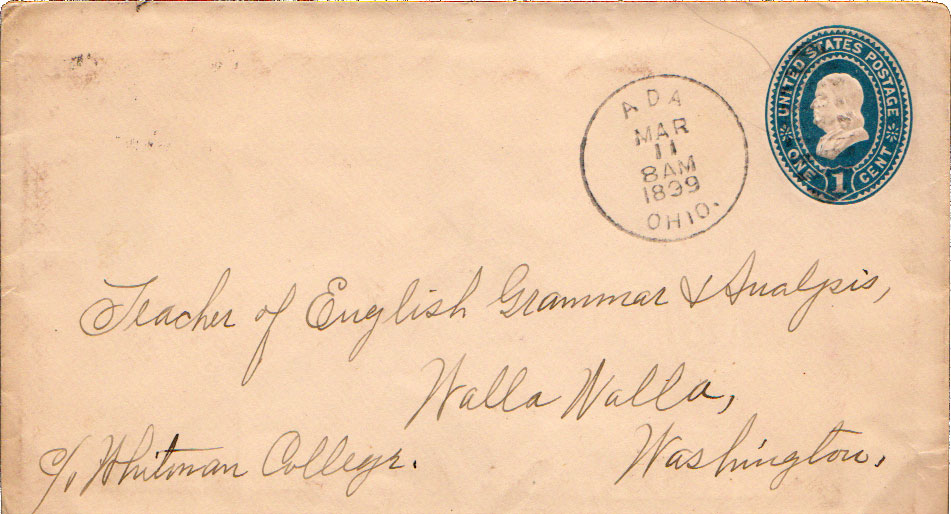 UNITED STATES POSTAGE
ONE 1 CENT
ADA
MAR
11
8AM
1899
OHIO.
Teacher of English Grammar & Analysis,
Walla Walla,
c/o Whitman College.
Washington.